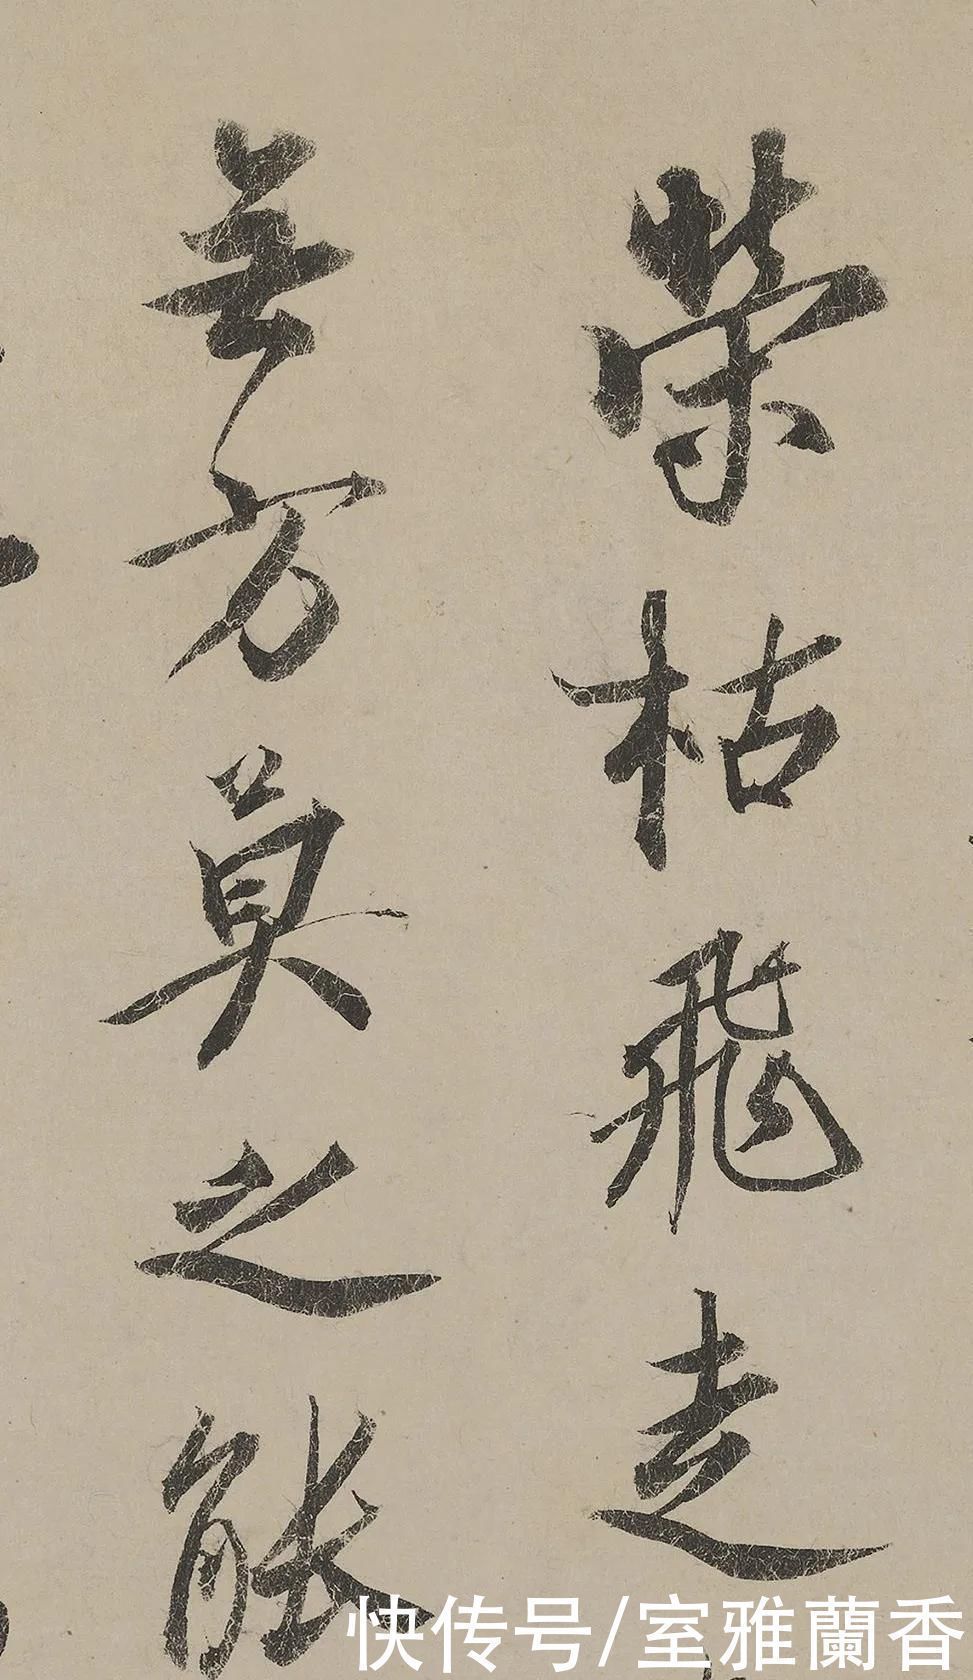 荣枯飛走
無方莫之能
快传号/室雅蘭香